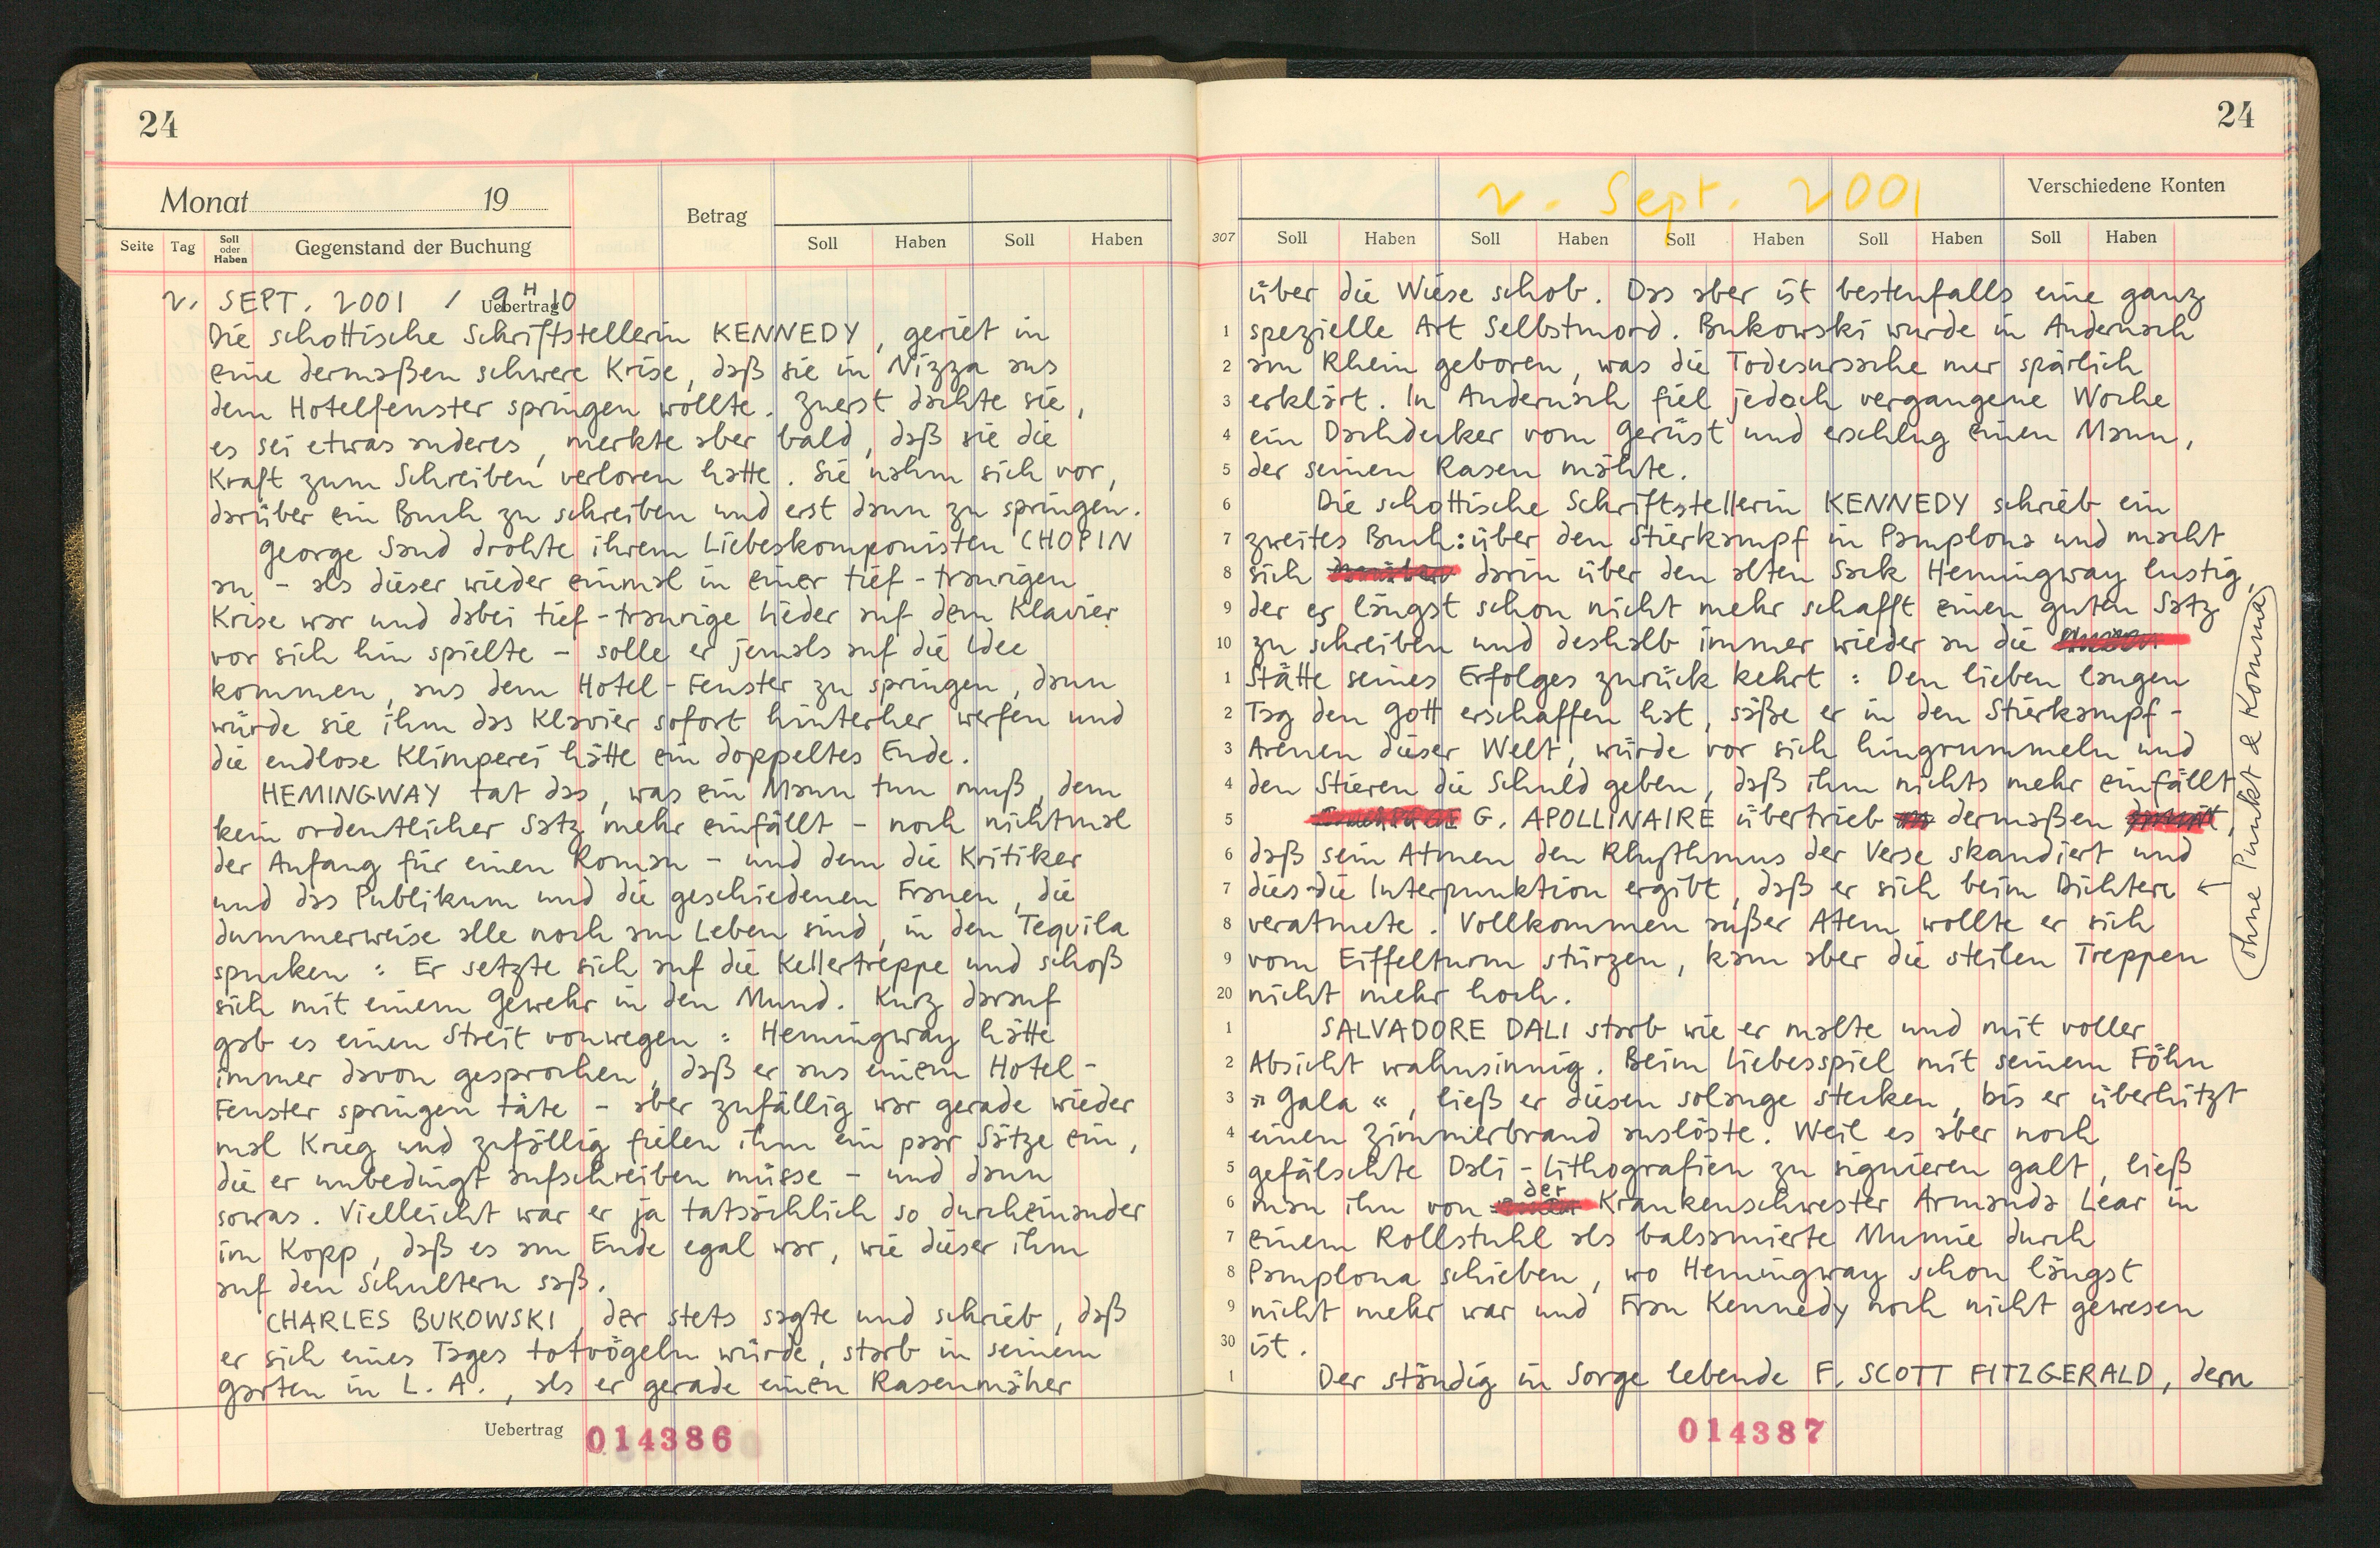 24
Monat 19
Betrag
Seite Tag Soll oder Haben Gegenstand der Buchung Soll Haben Soll Haben
Uebertrag
2. SEPT. 2001 / 9H10
Die schottische Schriftstellerin KENNEDY, geriet in
eine dermaßen schwere Krise, daß sie in Nizza aus
dem Hotelfenster springen wollte. Zuerst dachte sie,
es sei etwas anderes, merkte aber bald, daß sie die
Kraft zum Schreiben verloren hatte. Sie nahm sich vor,
darüber ein Buch zu schreiben und erst dann zu springen.
George Sand drohte ihrem Liebeskomponisten CHOPIN
an - als dieser wieder einmal in einer tief-traurigen
Krise war und dabei tief-traurige Lieder auf dem Klavier
vor sich hin spielte - solle er jemals auf die Idee
kommen, aus dem Hotel-Fenster zu springen, dann
würde sie ihm das Klavier sofort hinterher werfen und
die endlose Klimperei hätte ein doppeltes Ende.
HEMINGWAY tat das, was ein Mann tun muß, dem
kein ordentlicher Satz mehr einfällt - noch nichtmal
der Anfang für einen Roman - und dem die Kritiker
und das Publikum und die geschiedenen Frauen, die
dummerweise alle noch am Leben sind, in den Tequila
spucken : Er setzte sich auf die Kellertreppe und schoß
sich mit einem Gewehr in den Mund. Kurz darauf
gab es einen Streit vonwegen : Hemingway hätte
immer davon gesprochen, daß er aus einem Hotel-
Fenster springen täte - aber zufällig war gerade wieder
mal Krieg und zufällig fielen ihm ein paar Sätze ein,
die er unbedingt aufschreiben müsse - und dann
sowas. Vielleicht war er ja tatsächlich so durcheinander
im Kopp, daß es am Ende egal war, wie dieser ihm
auf den Schultern saß.
CHARLES BUKOWSKI, der stets sagte und schrieb, daß
er sich eines Tages totvögeln würde, starb in seinem
Garten in L. A., als er gerade einen Rasenmäher
Uebertrag 014386
24
2. Sept. 2001
Verschiedene Konten
307 Soll Haben Soll Haben Soll Haben Soll Haben Soll Haben
über die Wiese schob. Das aber ist bestenfalls eine ganz
1 spezielle Art Selbstmord. Bukowski wurde in Andernach
2 am Rhein geboren, was die Todesursache nur spärlich
3 erklärt. In Andernach fiel jedoch vergangene Woche
4 ein Dachdecker vom Gerüst und erschlug einen Mann,
5 der seinen Rasen mähte.
6 Die schottische Schriftstellerin KENNEDY schrieb ein
7 zweites Buch: über den Stierkampf in Pamplona und macht
8 sich darin über den alten Sack Hemingway lustig,
9 der es längst schon nicht mehr schafft einen guten Satz
10 zu schreiben und deshalb immer wieder an die
1 Stätte seines Erfolges zurück kehrt : Den lieben langen
2 Tag den Gott erschaffen hat, säße er in den Stierkampf-
3 Arenen dieser Welt, würde vor sich hingrummeln und
4 den Stieren die Schuld geben, daß ihm nichts mehr einfällt.
5 G. APOLLINAIRE übertrieb dermaßen,
6 daß sein Atmen den Rhythmus der Verse skandiert und
7 dies die Interpunktion ergibt, daß er sich beim Dichten ←
8 veratmete. Vollkommen außer Atem wollte er sich
9 vom Eiffelturm stürzen, kam aber die steilen Treppen
20 nicht mehr hoch.
1 SALVADORE DALI starb wie er malte und mit voller
2 Absicht wahnsinnig. Beim Liebesspiel mit seinem Föhn
3 »Gala«, ließ er diesen solange stecken, bis er überhitzt
4 einen Zimmerbrand auslöste. Weil es aber noch
5 gefälschte Dali-Lithografien zu signieren galt, ließ
6 man ihn von der Krankenschwester Armanda Lear in
7 einem Rollstuhl als balsamierte Mumie durch
8 Pamplona schieben, wo Hemingway schon längst
9 nicht mehr war und Frau Kennedy noch nicht gewesen
30 ist.
1 Der ständig in Sorge lebende F. SCOTT FITZGERALD, dem
ohne Punkt & Komma
014387